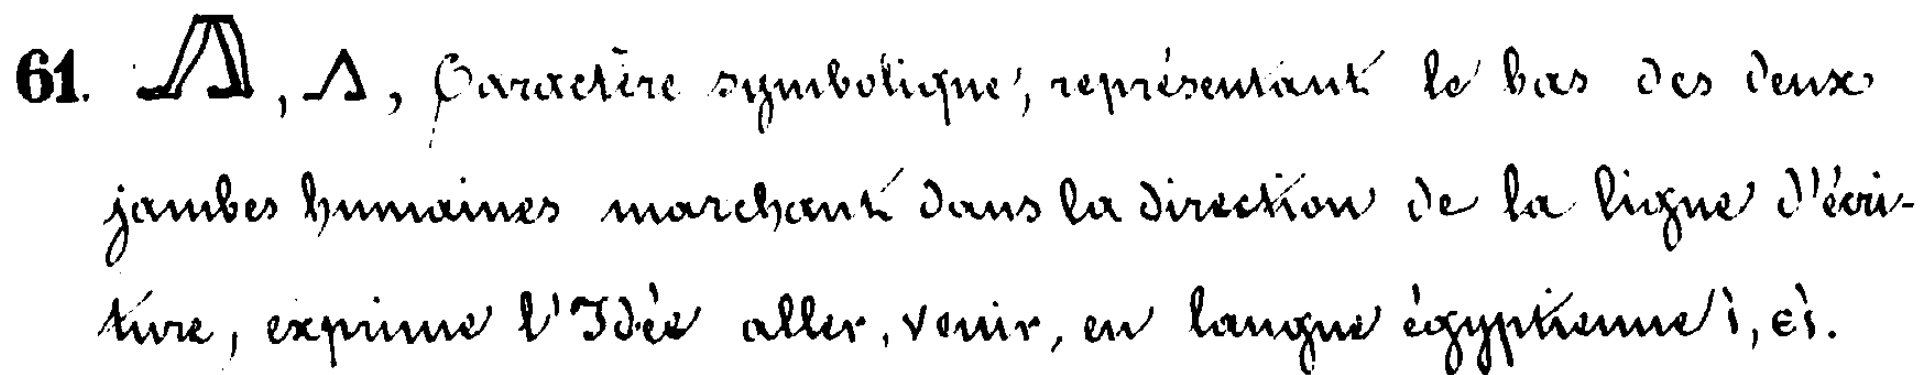 61. 𓂻, 𓂻, Caractère symbolique, représentant le bas des deux
jambes humaines marchant dans la direction de la ligne d'écri-
ture, exprime l'Idée aller, venir, en langue égyptienne ⲓ̀, ⲉⲓ̀.